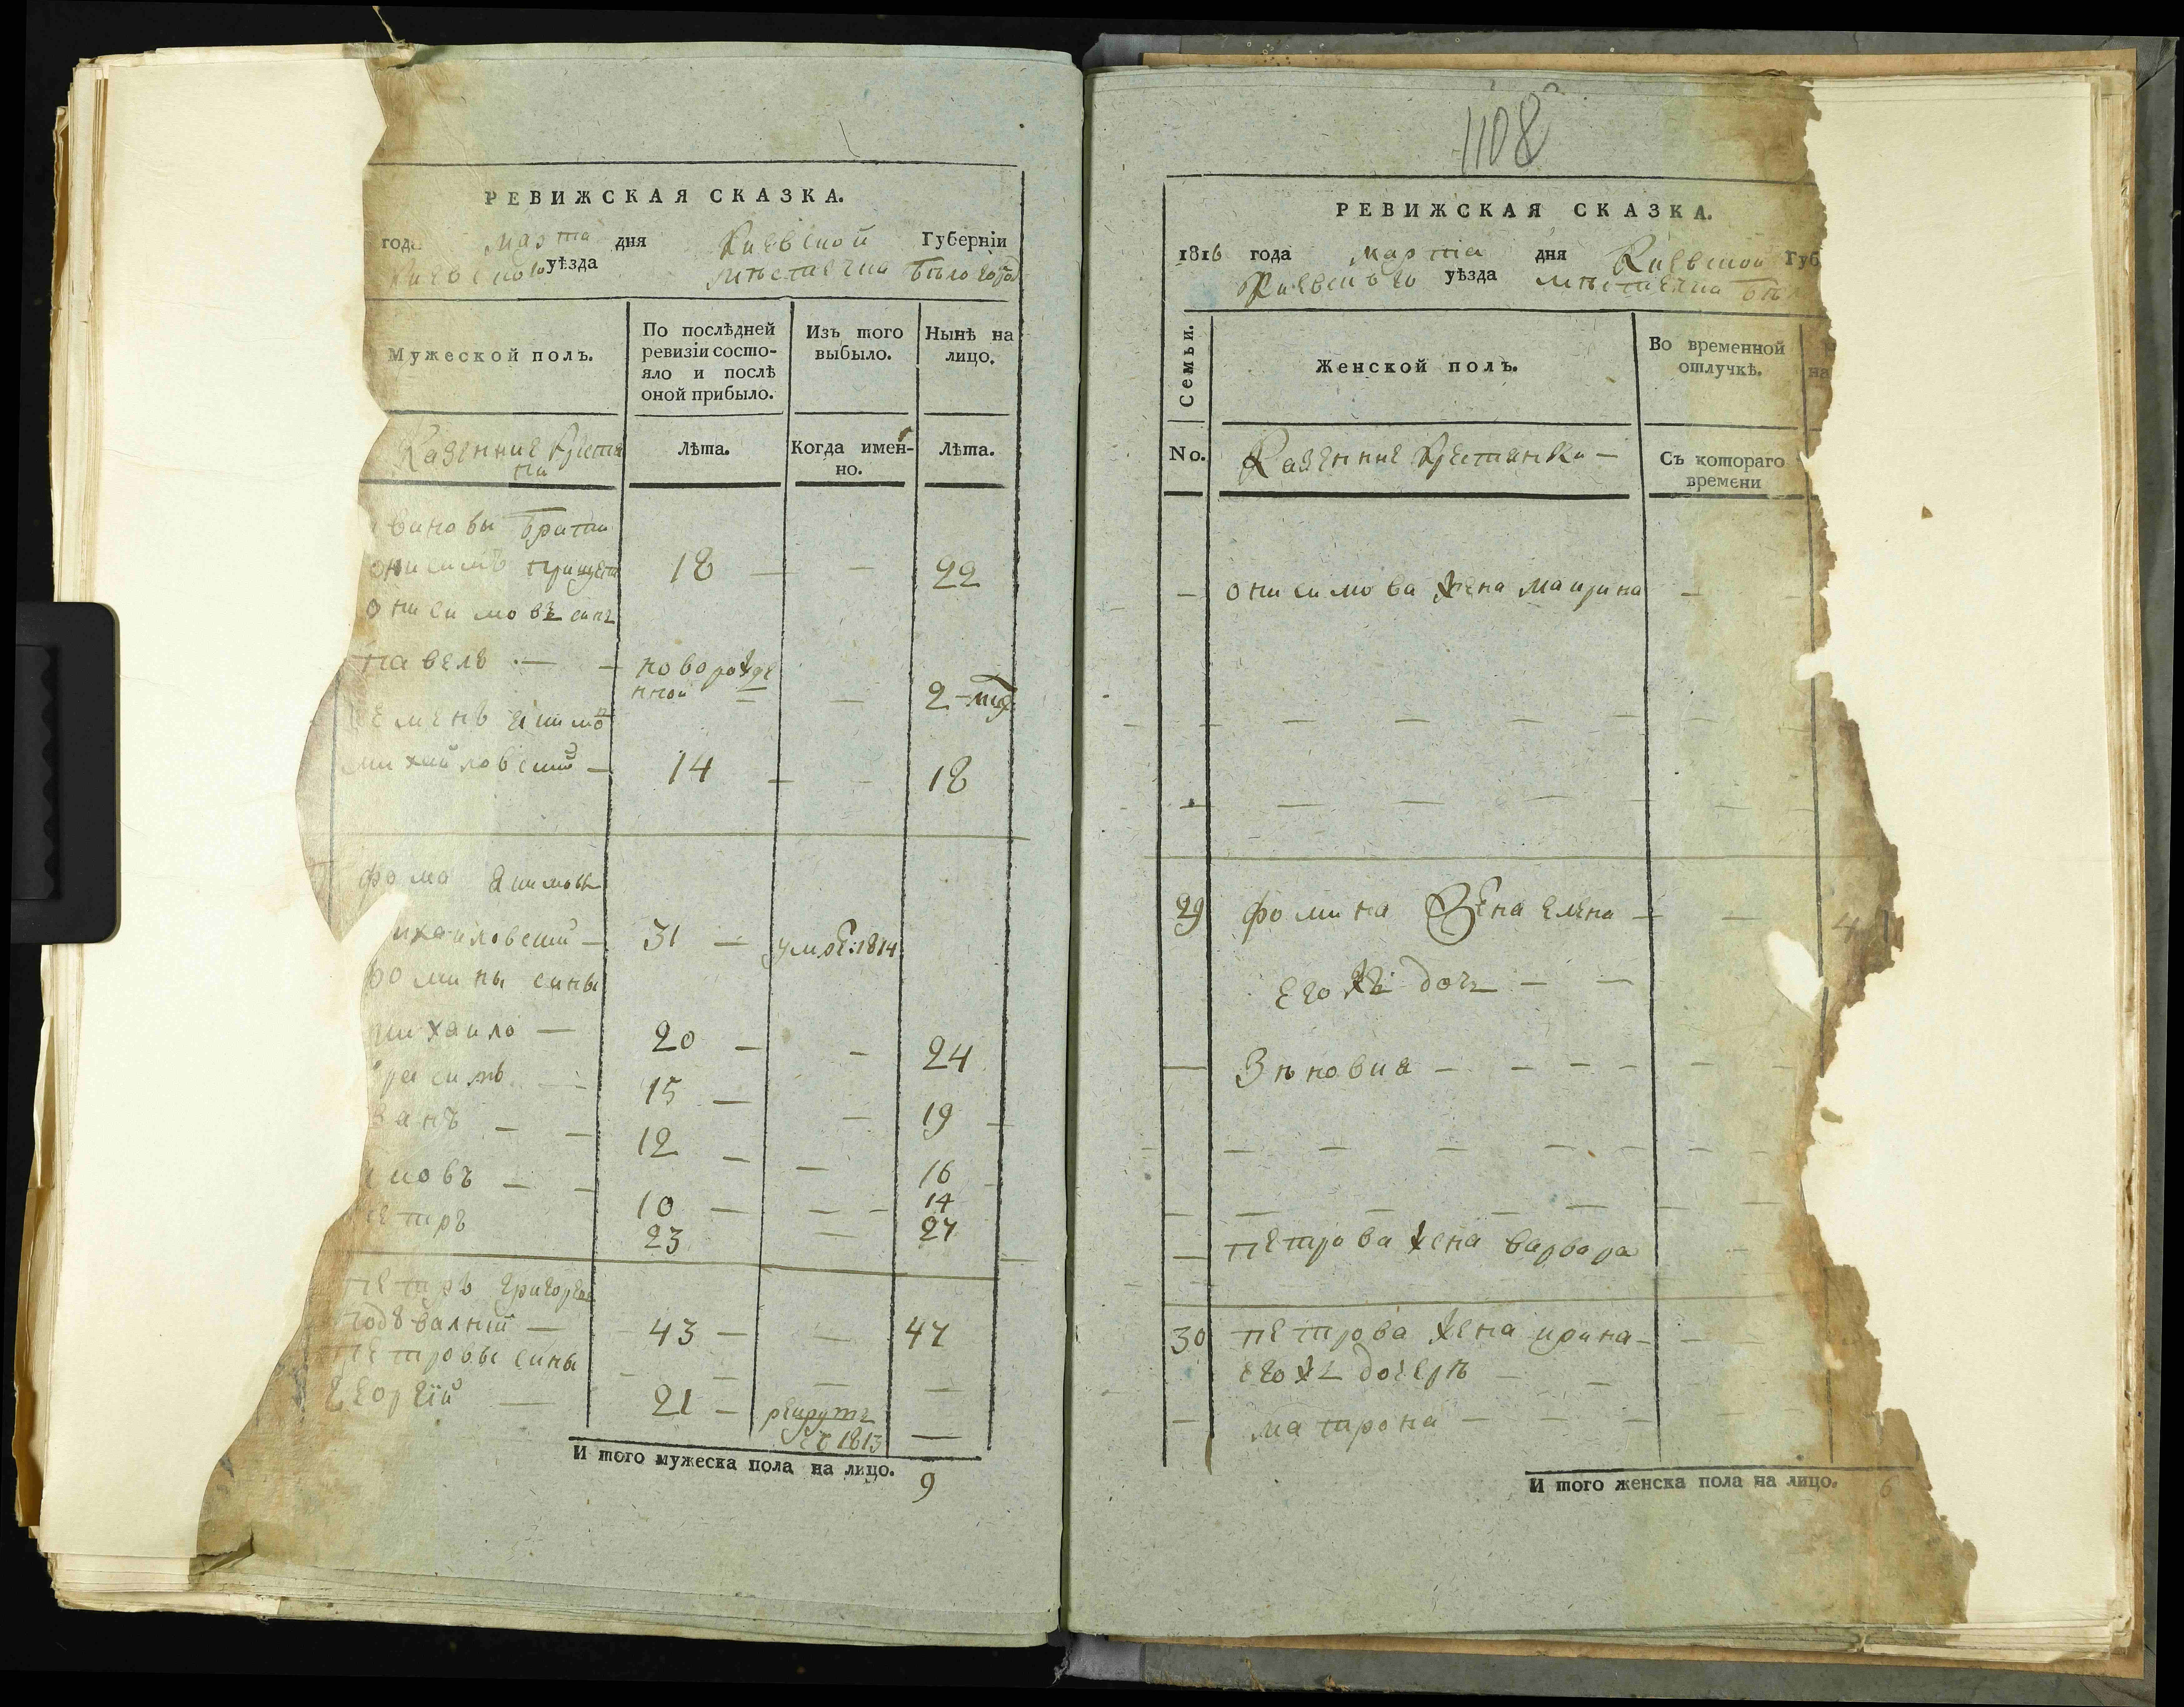 РЕВИЖСКАЯ СКАЗКА.
года марта дня Киевской Губерніи
Киевского уѣзда мѣстечка Бѣлогород
Мужеской полъ.
По послѣдней ревизіи состояло и послѣ оной прибыло.
Изъ того выбыло.
Нынѣ на лицо.
Казенние крестя
не
лѣта.
Когда именно.
лѣта.
братия
онисимъ 18 — — 22
онисимовъ синъ
павелъ — — новорожде
нной — 2
михайловский — 14 — — 18
фома Екимовъ
ихаиловский — 31 — умре: 1814
фомины сины
михаило — 20 — — 24
расимъ — 15 — — 19
ванъ — — 12 — — 16
ковъ — — 10 — — — 14
петръ 23 — 27
петръ григорьев
43 — — 47
петровы сины
георгїй — 21 — рекрутъ
съ 1813 —
И того мужеска пола на лицо. 9
1108
РЕВИЖСКАЯ СКАЗКА.
1816 года марта дня Киевской Губ
Киевского уѣзда мѣстечка Бѣл
Семьи.
Женской полъ.
Во временной отлучкѣ.
на
No.
Казенние крестянки —
Съ котораго времени
— онисимова жена маирина —
29 фомина Жена елена — —
его жъ дочъ — —
— Зѣновия — — — —
— петрова жена варвара
30 петрова жена ирина —
его жъ дочерѣ
— матрона —
И того женска пола на лицо. 6